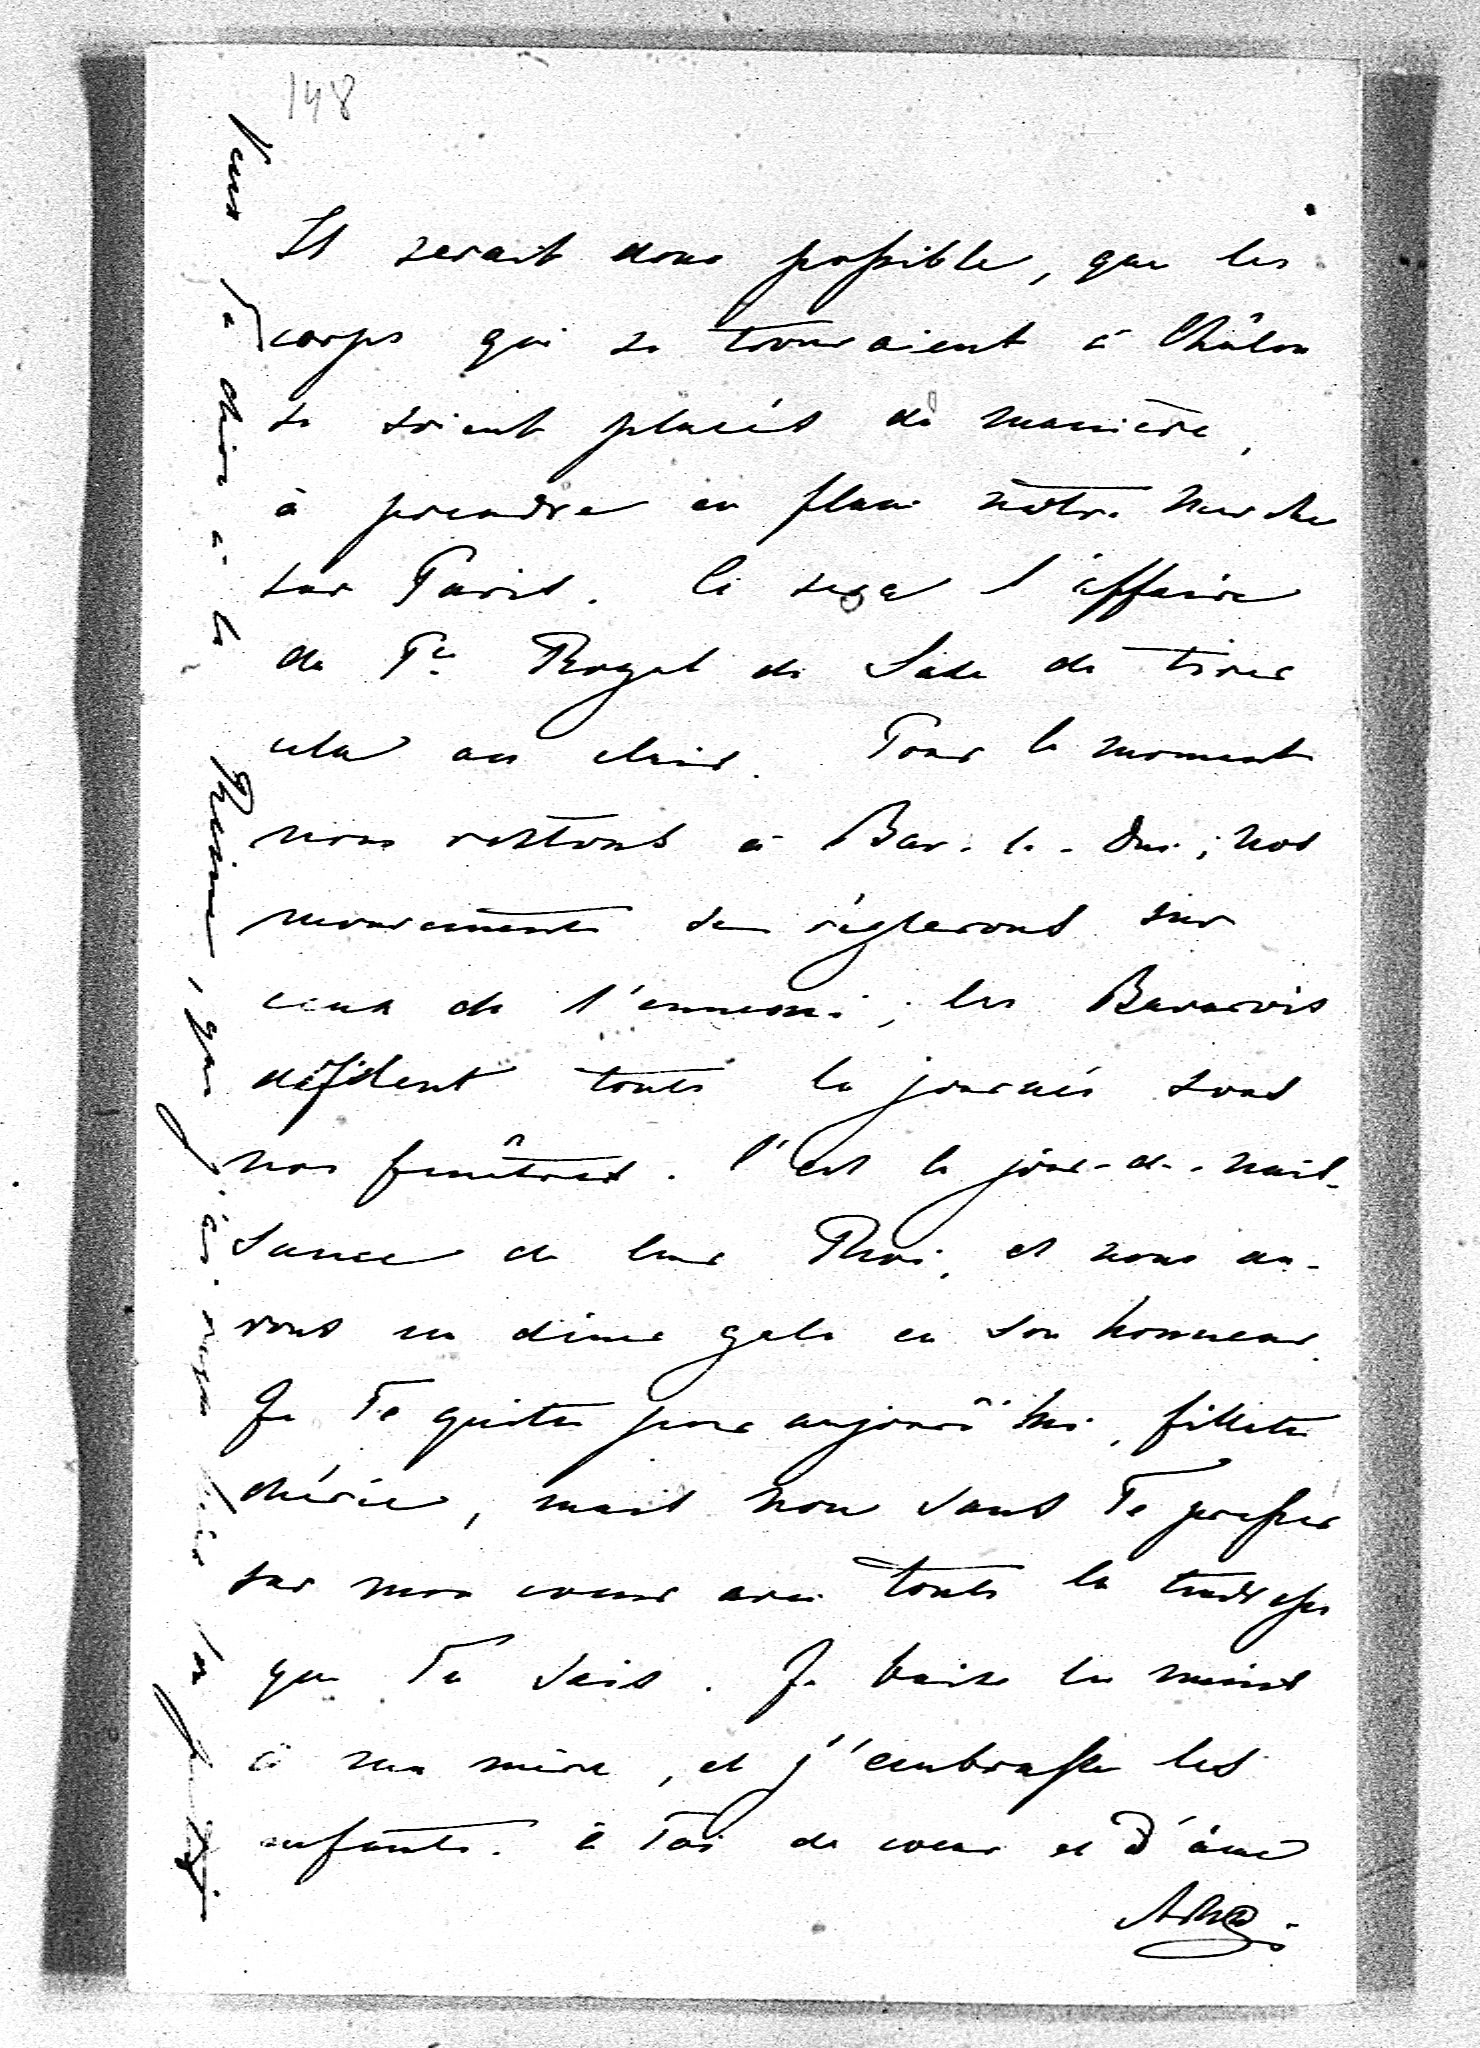 148
Il serait donc possible, que les
corps qui se trouvaient à Châlon
se soient placés de manière,
à prendre en flanc nôtre marche
sur Paris. Ce sera l'affaire
du Pce Royal de Saxe de tirer
cela au clair. Pour le moment
nous restons à Bar-le-Duc; nos
mouvements se règlerons sur
ceux de l'ennemi; les Bavarois
défilent toute la journée sous
nos fenêtres. C'est le jour-de-nais-
sance de leur Roi, et nous au-
rons un dîner gala en son honneur.
Je Te quitte pour aujourd'hui, fillette
chérie, mais non sans Te presser
sur mon coeur avec toute la tendresse
que Tu sais. Je baise les mains
à ma mère, et j'embrasse les
enfants. à Toi de coeur et d'âme
Veux-Tu dire à la Reine, que j'écrirai